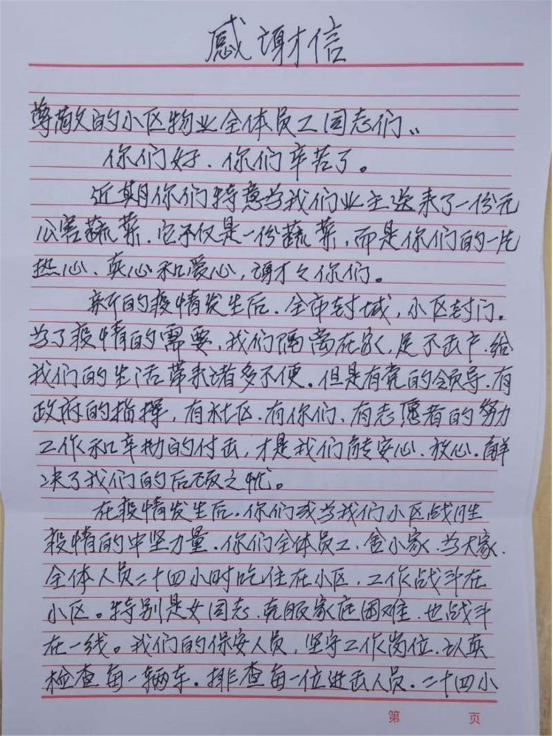 感谢信
尊敬的小区物业全体员工同志们：
你们好．你们辛苦了。
近期你们特意为我们业主送来了一份无
公害蔬菜．它不仅是一份蔬菜，而是你们的一片
热心、真心和爱心，谢谢你们。
新的疫情发生后．全市封城，小区封门。
为了疫情的需要，我们隔离在家，足不出户．给
我们的生活带来诸多不便．但是有党的领导．有
政府的指挥，有社区．有你们、有志愿者的努力
工作和辛勤的付出，才是我们能安心．放心．解
决了我们的后顾之忧。
在疫情发生后．你们成为我们小区战胜
疫情的中坚力量．你们全体员工．舍小家．为大家．
全体人员二十四小时吃住在小区，工作战斗在
小区。特别是女同志．克服家庭困难．也战斗
在一线。我们的保安人员，坚守工作岗位．认真
检查每一辆车．排查每一位进出人员．二十四小
第 页